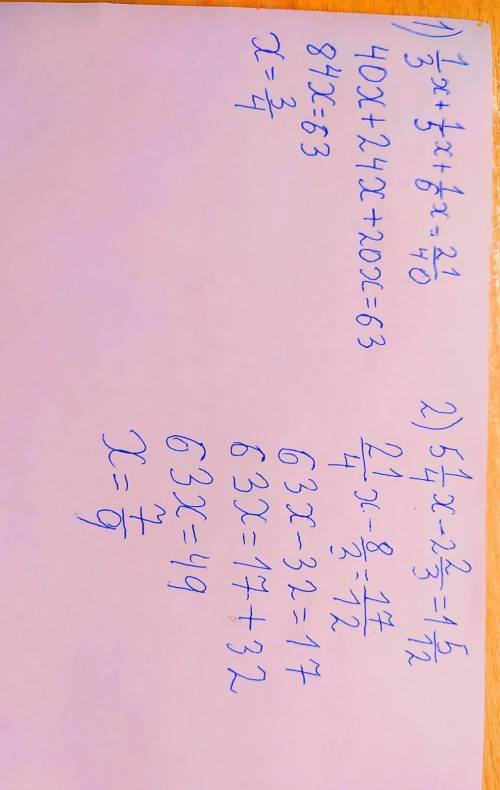 1) 1/3 x + 1/5 x + 1/6 x = 21/40
40x + 24x + 20x = 63
84x = 63
x = 3/4
2) 5 1/4 x - 2 2/3 = 1 5/12
21/4 x - 8/3 = 17/12
63x - 32 = 17
63x = 17 + 32
63x = 49
x = 7/9